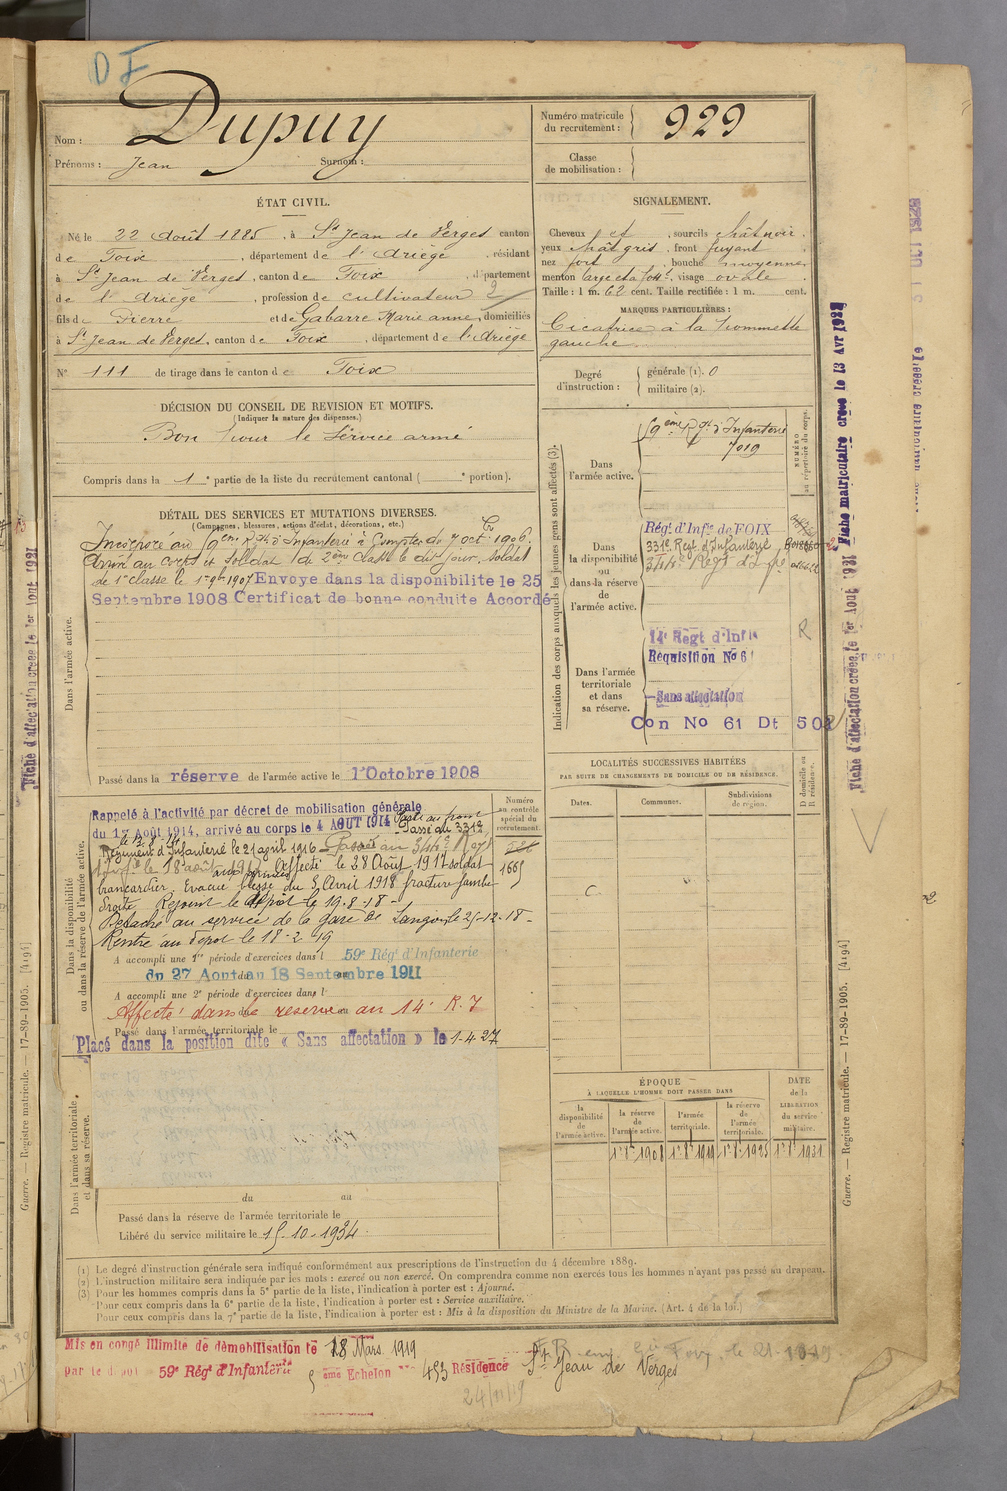 DF
Nom : Dupuy
Prénoms : Jean Surnom :
Numéro matricule
du recrutement : 929
Classe
de mobilisation :
ÉTAT CIVIL.
Né le 22 Août 1885, à St Jean de Verges canton
de Foix, département de l'Ariège, résidant
à St Jean de Verges, canton de Foix, département
de l'Ariège, profession de cultivateur
fils de Pierre et de Gabarre Marie anne, domiciliés
à St Jean de Verges, canton de Foix, département de l'Ariège
N° 111 de tirage dans le canton de Foix
SIGNALEMENT.
Cheveux et, sourcils chât noir,
yeux chât gris, front fuyant,
nez fort, bouche moyenne,
menton large, visage ovale.
Taille : 1 m. 62 cent. Taille rectifiée : 1 m. cent.
MARQUES PARTICULIÈRES :
Cicatrice à la pommette
gauche.
Degré
d'instruction :
générale (1). 0
militaire (2).
DÉCISION DU CONSEIL DE REVISION ET MOTIFS.
(Indiquer la nature des dispenses.)
Bon pour le Service armé
Compris dans la 1e partie de la liste du recrutement cantonal ( e portion).
DÉTAIL DES SERVICES ET MUTATIONS DIVERSES.
(Campagnes, blessures, actions d'éclat, décorations, etc.)
Dans l'armée active.
Incorporé au 59ème Rgt d'Infanterie à Compter du 7 oct 1906.
Arrivé au corps et soldat de 2ème classe le dit jour. Soldat
de 1e classe le 1 9bre 1907 Envoyé dans la disponibilité le 25
Septembre 1908 Certificat de bonne conduite Accordé
Passé dans la réserve de l'armée active le 1er Octobre 1908
Indication des corps auxquels les jeunes gens sont affectés (3).
NUMÉRO
au répertoire du corps.
Dans
l'armée active.
59ème Rgt d'Infanterie
7019
Dans
la disponibilité
ou
dans la réserve
de
l'armée active.
Régt d'Infie de FOIX
331e Regt d'Infanterie
344e Regt d'Infie
Dans l'armée
territoriale
et dans
sa réserve.
14e Regt d'Infie
Requisition No 61
Sans affectation
Con No 61 Dt 502
R
Dans la disponibilité
ou dans la réserve de l'armée active.
Numéro
au contrôle
spécial du
recrutement.
1665
Rappelé à l'activité par décret de mobilisation générale
du 1er Août 1914, arrivé au corps le 4 AOUT 1914 Parti au front
le 12-8-14 Passé au 331e
Régiment d'Infanterie le 21 april 1916 Passé au 344e Régt
d'Infie le 18 août 1917 Affecté le 28 Août 1917 soldat
brancardier. Evacué blessé du 5 Avril 1918 fracture jambe
droite. Rejoint le dépôt le 19-8-18
Détaché au service de la gare de Langon le 25-12-18
Rentré au dépot le 18-2-19
A accompli une 1re période d'exercices dans l 59e Régt d'Infanterie
du 27 Aout au 18 Septembre 1911
A accompli une 2e période d'exercices dans l
Affecté dans la reserve au 14e R.I
Passé dans l'armée territoriale le
Placé dans la position dite « Sans affectation » le 1-4-27
Dans l'armée territoriale,
et dans sa réserve.
du au
Passé dans la réserve de l'armée territoriale le
Libéré du service militaire le 15-10-1934.
LOCALITÉS SUCCESSIVES HABITÉES
PAR SUITE DE CHANGEMENTS DE DOMICILE OU DE RÉSIDENCE.
Dates. Communes. Subdivisions
de région.
D domicile ou
R résidence.
ÉPOQUE
À LAQUELLE L'HOMME DOIT PASSER DANS
DATE
de la
LIBÉRATION
du service
militaire.
la
disponibilité
de
l'armée active.
la réserve
de
l'armée active.
l'armée
territoriale.
la réserve
de
l'armée
territoriale.
1er 8bre 1908 1er 8bre 1919 1er 8bre 1925 1er 8bre 1931
(1) Le degré d'instruction générale sera indiqué conformément aux prescriptions de l'instruction du 4 décembre 1889.
(2) L'instruction militaire sera indiquée par les mots : exercé ou non exercé. On comprendra comme non exercés tous les hommes n'ayant pas passé au drapeau.
(3) Pour les hommes compris dans la 5e partie de la liste, l'indication à porter est : Ajourné.
Pour ceux compris dans la 6e partie de la liste, l'indication à porter est : Service auxiliaire.
Pour ceux compris dans la 7e partie de la liste, l'indication à porter est : Mis à la disposition du Ministre de la Marine. (Art. 4 de la loi.)
Mis en congé illimité de démobilisation le 18 Mars 1919
par le dépôt 59e Régt d'Infanterie 5ème Echelon No 453 Résidence St Jean de Verges
24/11/19
Fiche matriculaire créée le 13 Avr 1931
Fiche d'affectation créée le 1er Aout 1931
Guerre. — Registre matricule. — 17-89-1905. [4194]
Fiche d'affectation créée le 1er Aout 1931
Guerre. — Registre matricule. — 17-89-1905. [4194]